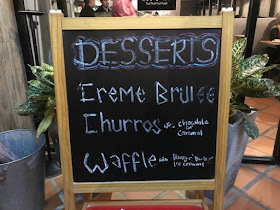 DESSERTS
Creme Brulee
Churros w/ chocolate or
caramel
Waffle w/
ice cream